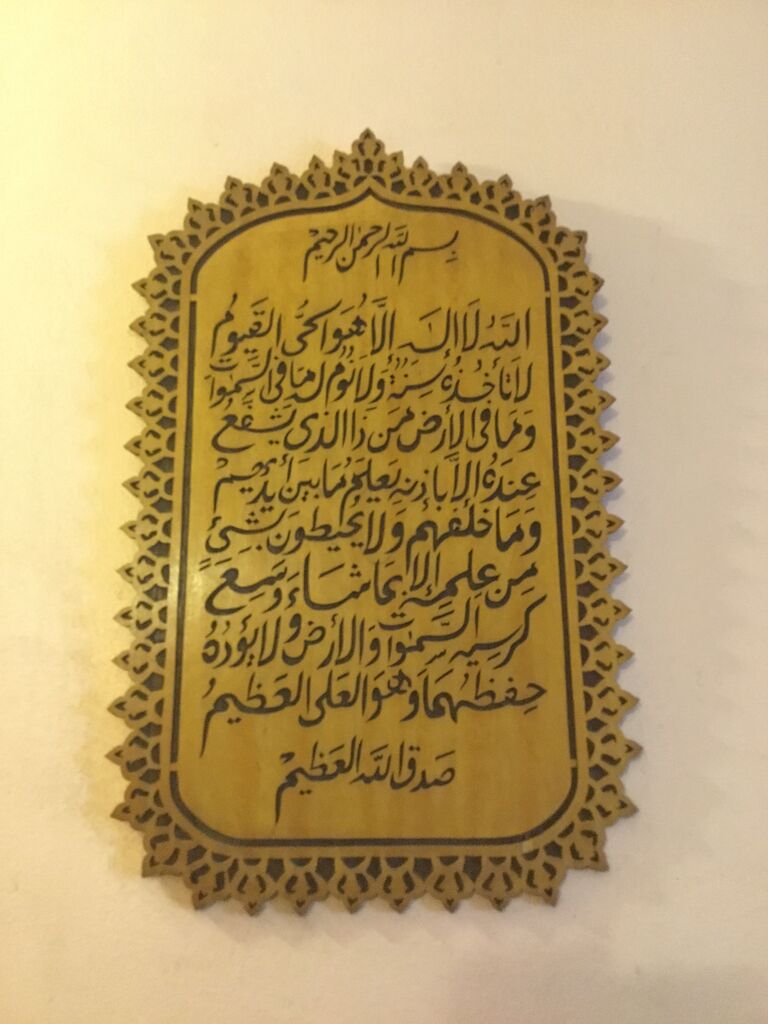 بسم الله الرحمن الرحيم
الله لا اله الا هو الحي القيوم
لا تأخذه سنة ولا نوم له ما في السموات
وما في الأرض من ذا الذي يشفع
عنده الا باذنه يعلم ما بين أيديهم
وما خلفهم ولا يحيطون بشئ
من علمه الا بما شاء وسع
كرسيه السموات والأرض ولا يؤده
حفظهما وهو العلي العظيم
صدق الله العظيم